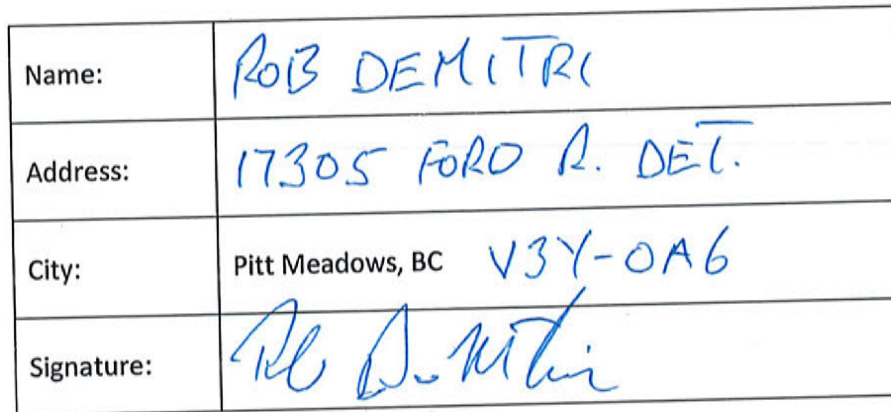 Name: ROB DEMITRI
Address: 17305 FORD R. DET.
City: Pitt Meadows, BC V3Y-0A6
Signature: